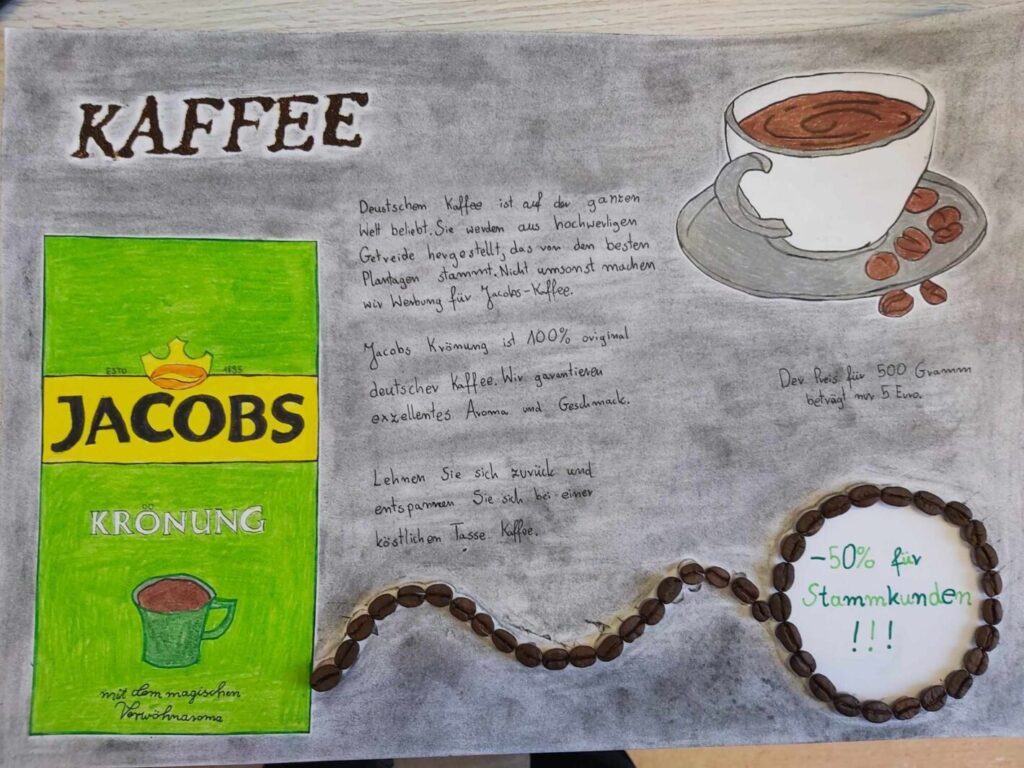 KAFFEE
Deustschen Kaffee ist auf der ganzen
Welt beliebt. Sie werden aus hochwertigen
Getreide hergestellt, das von den besten
Plantagen stammt. Nicht umsonst machen
wir Werbung für Jacobs-Kaffee.
Jacobs Krönung ist 100% original
deutscher Kaffee. Wir garantieren
exzellentes Aroma und Geschmack.
Lehnen Sie sich zurück und
entspannen Sie sich bei einer
köstlichen Tasse Kaffee.
ESTD 1895
JACOBS
KRÖNUNG
mit dem magischen
Verwöhnaroma
Der Preis für 500 Gramm
beträgt nur 5 Euro.
-50% für
Stammkunden
!!!